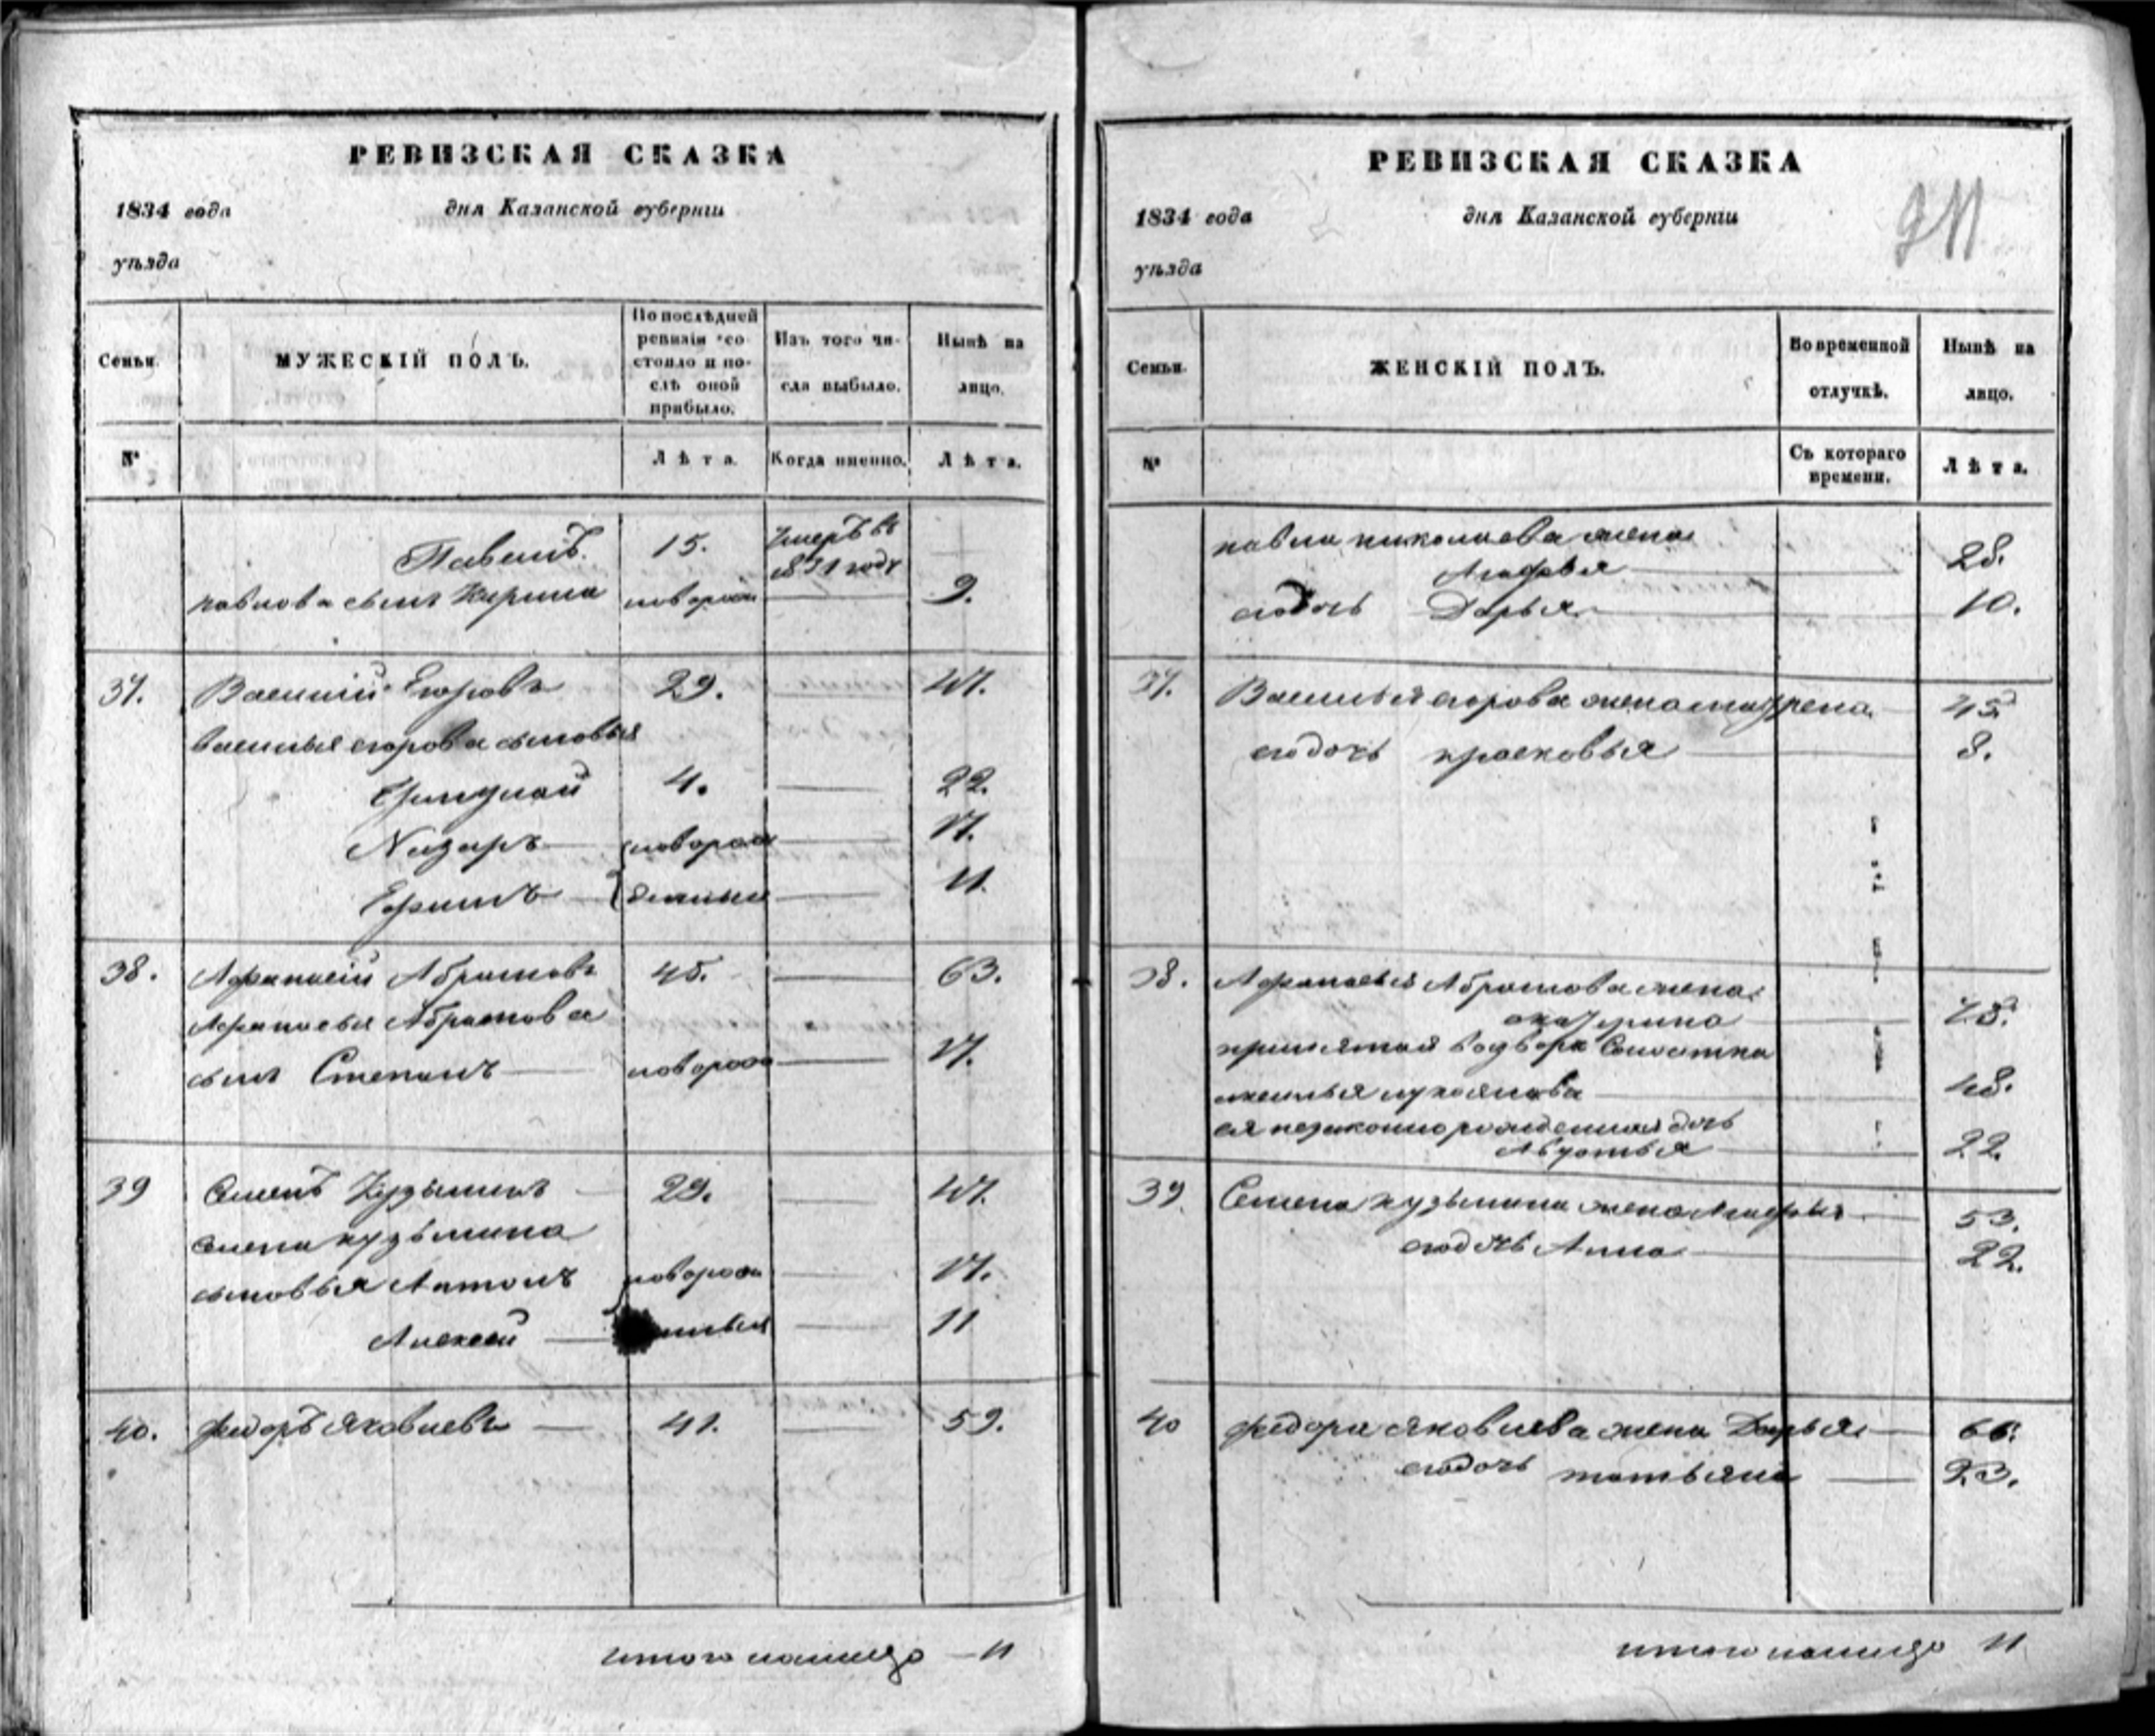 РЕВИЗСКАЯ СКАЗКА
1834 года дня Казанской губерніи
уѣзда
Семьи.
МУЖЕСКІЙ ПОЛЪ.
По послѣдней ревизіи состояло и послѣ оной прибыло.
Изъ того числа выбыло.
Нынѣ на лицо.
№
Лѣта.
Когда именно.
Лѣта.
Павелъ. 15. Умеръ въ
1831 году
павлова сынъ Кирила новорож 9.
37. Василій Егоровъ 29. 47.
василья егорова сыновья
4. 22.
Назаръ новорож 17.
Ефимъ 11.
38. Афанасій Абрамовъ 45. 63.
Афанасья Абрамова
сынъ Степанъ новорож 17.
39 Семенъ Кузьминъ 29. 47.
семена кузьмина
сыновья Антонъ новорож 17.
Алексей 11
40. федоръ яковлевъ 41. 59.
итого налицо 11
РЕВИЗСКАЯ СКАЗКА
1834 года дня Казанской губерніи
уѣзда
Семьи.
ЖЕНСКІЙ ПОЛЪ.
Во временной отлучкѣ.
Нынѣ на лицо.
№
Съ котораго времени.
Лѣта.
павла николаева жена
Агафья 28.
ево дочь Дарья 10.
37. Василья егорова жена матрена 45.
ево дочь прасковья 8.
38. Афанасья Абрамова жена
катерина 48.
48.
ея незаконнорожденная дочь
Авдотья 22.
39. Семена кузьмина жена Агафья 53.
ево дочь Анна 22.
40 федора яковлева жена Дарья 66.
ево дочь татьяна 23.
итого налицо 11